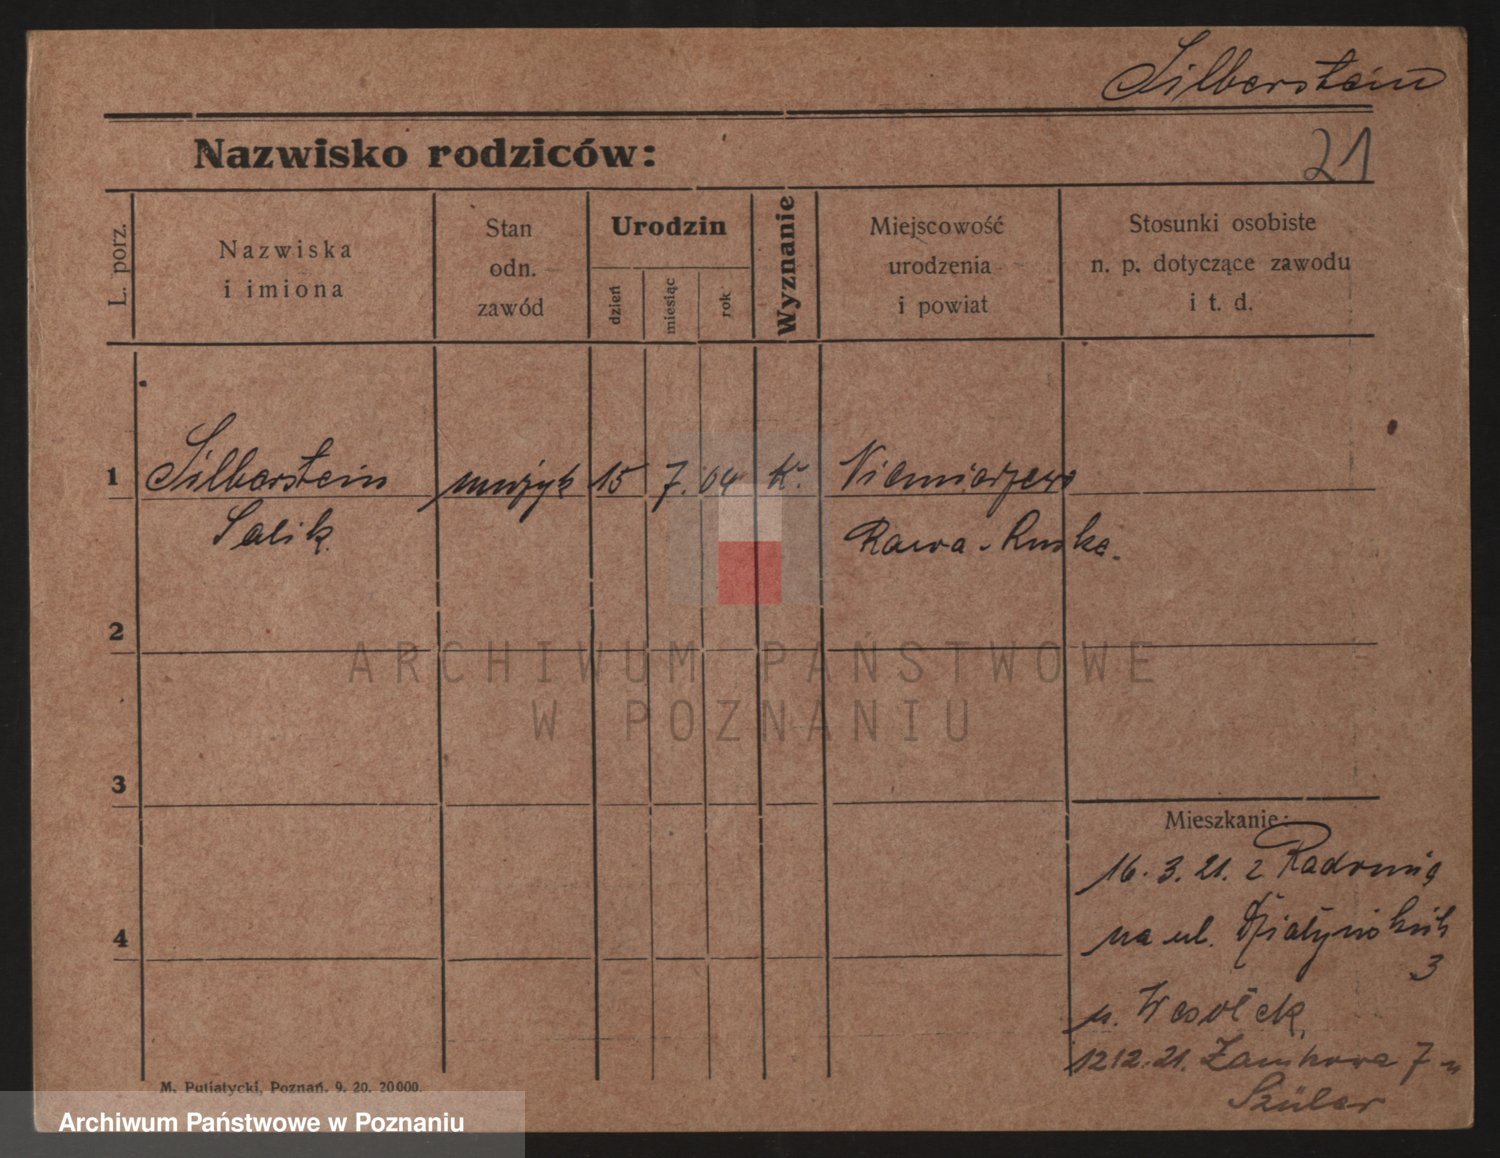 Silberstein
Nazwisko rodziców:
21
L. porz.
Nazwiska
i imiona
Stan
odn.
zawód
Urodzin
dzień
miesiąc
rok
Wyznanie
Miejscowość
urodzenia
i powiat
Stosunki osobiste
n. p. dotyczące zawodu
i t. d.
1
Silberstein
muzyk
15
7.
04
K.
Salik
Rawa-Ruska.
2
ARCHIWUM PAŃSTWOWE
W POZNANIU
3
Mieszkanie:
16. 3. 21. z Radomia
4
na ul. Działyńskich
3
u. Wesołek
12 12. 21. Zamkowa 7 u
Szüler
M. Putiatycki, Poznań. 9. 20. 20000.
Archiwum Państwowe w Poznaniu